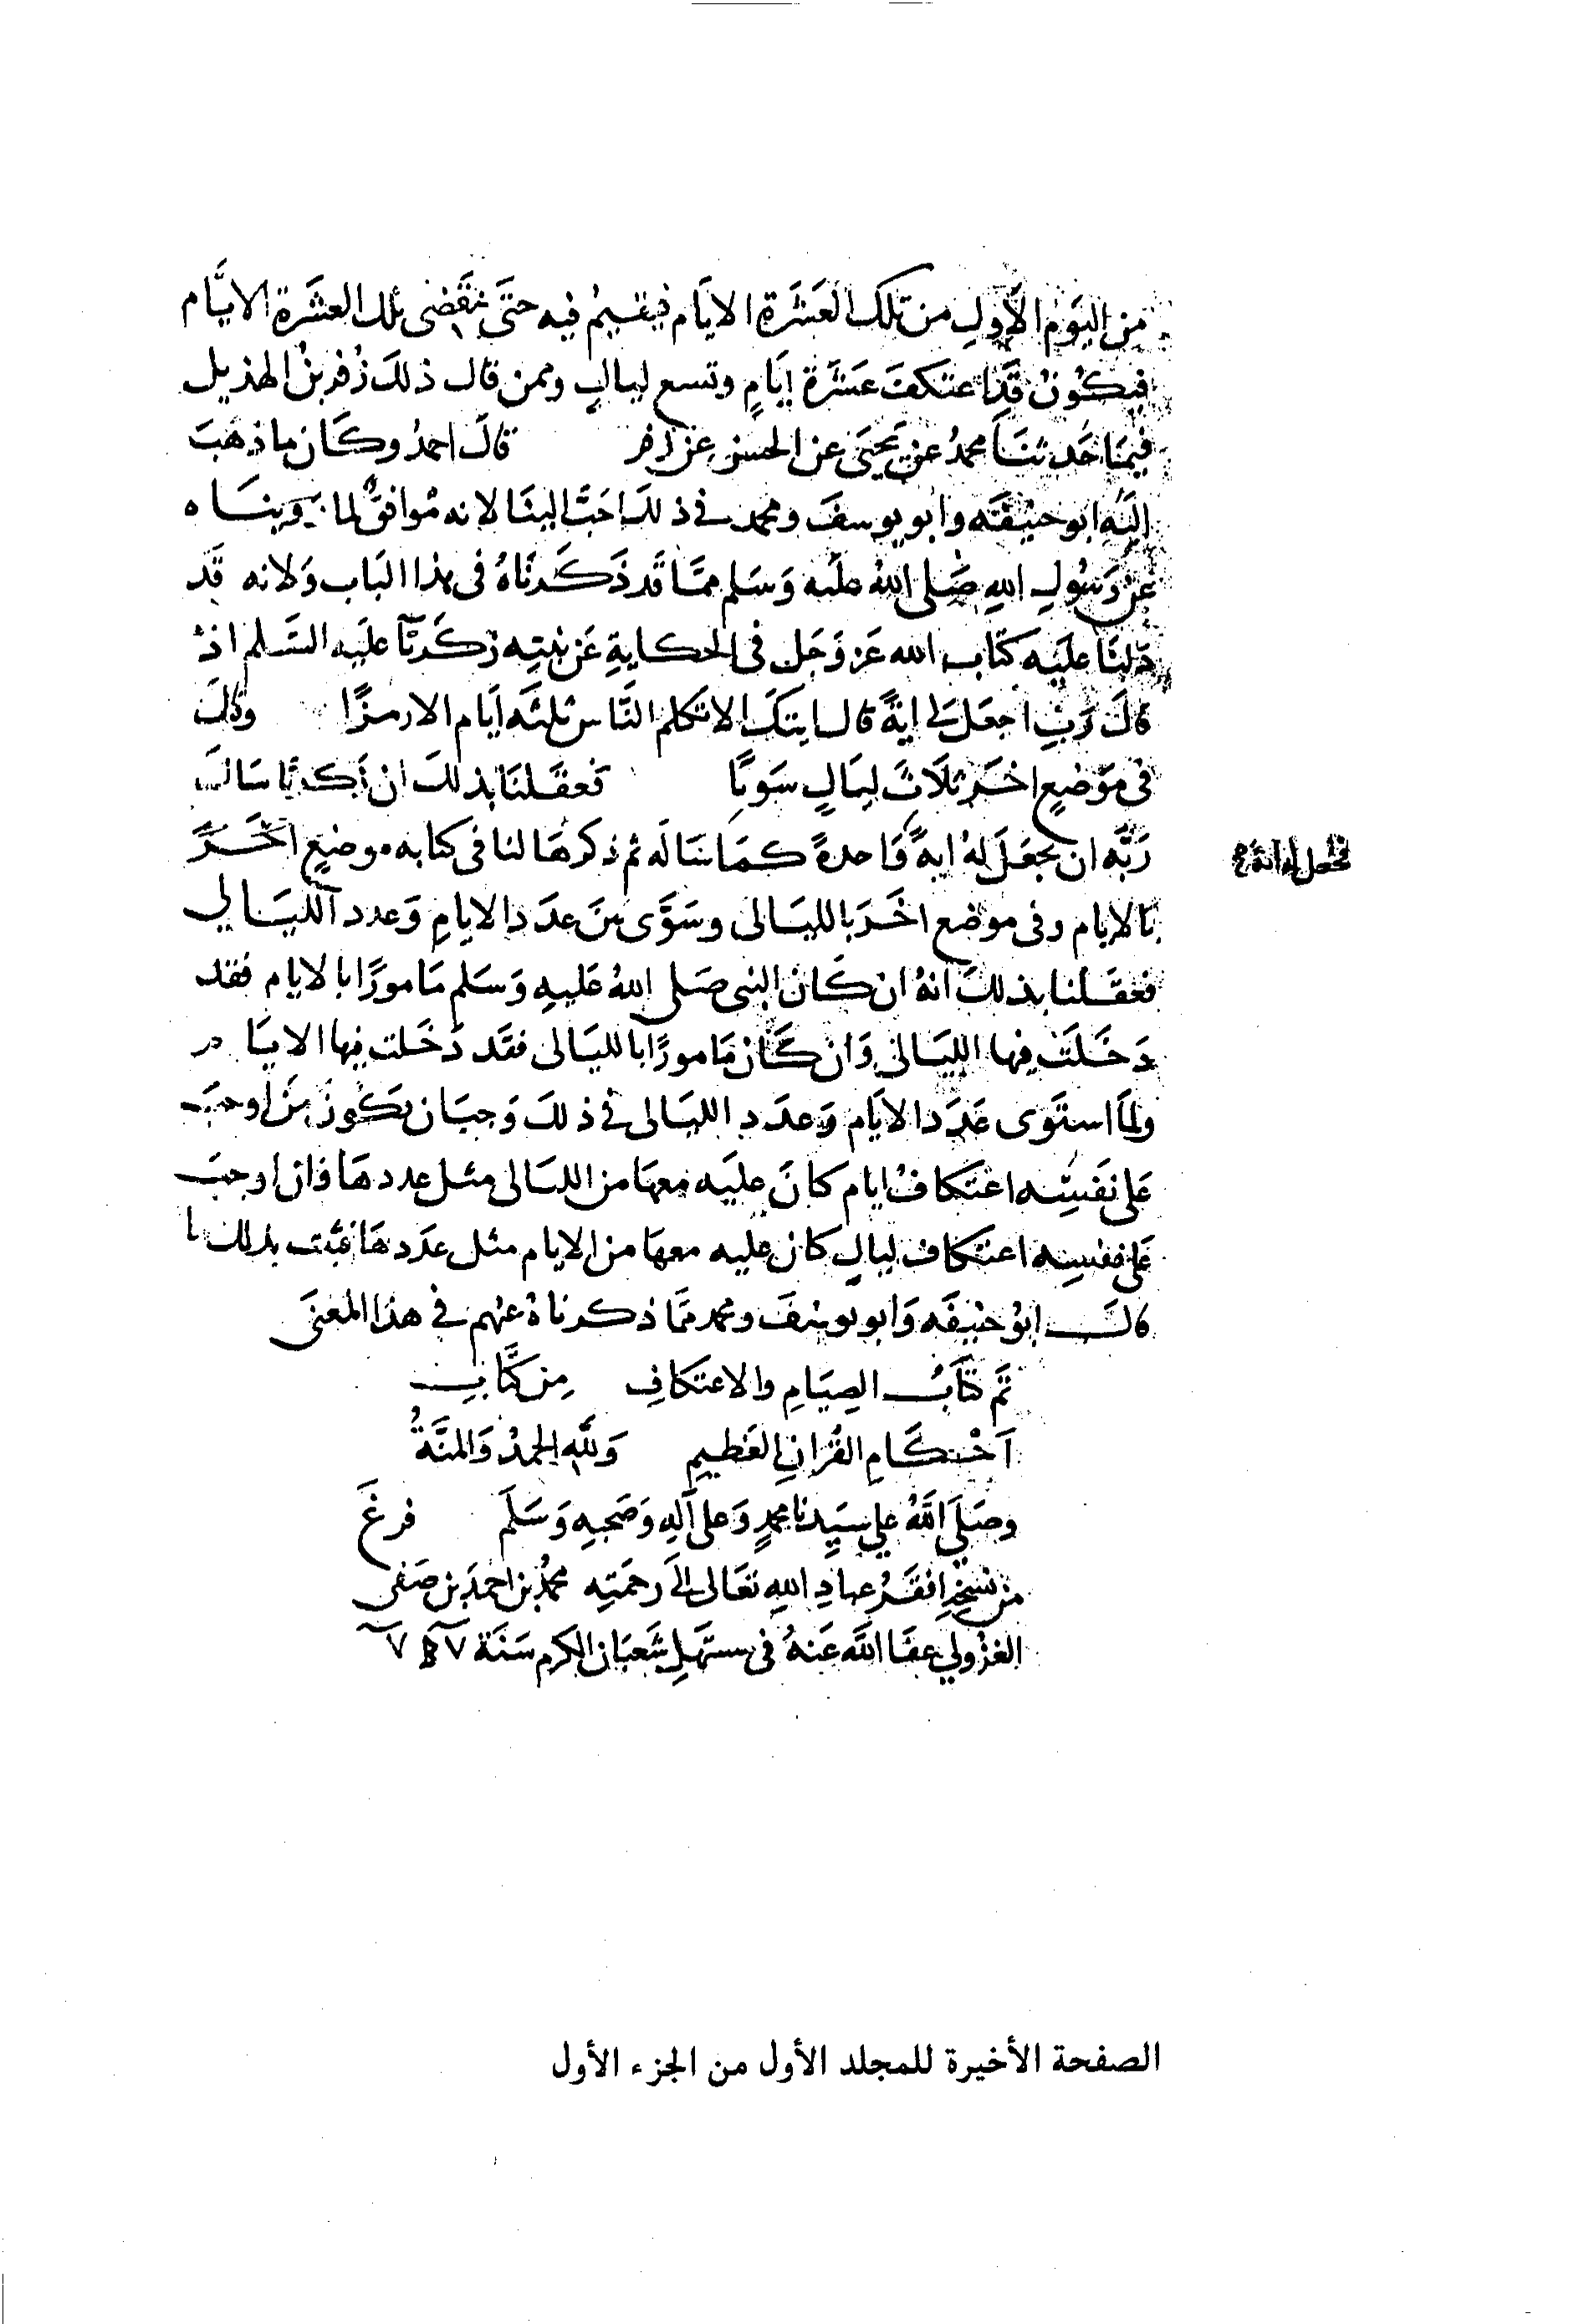 من اليوم الأول من تلك العشرة الايام فيقيم فيه حتى تنقضى تلك العشرة الايام
فيكون قد اعتكف عشرة ايام وتسع ليال وممن قال ذلك زفر بن الهذيل
فيما حدثنا محمد عن يحيى عن الحسن عن زفر قال احمد وكان ما ذهب
اليه ابو حنيفة وابو يوسف ومحمد في ذلك احب الينا لانه موافق لما رويناه
عن رسول الله صلى الله عليه وسلم مما قد ذكرناه فى هذا الباب ولانه قد
دلنا عليه كتاب الله عز وجل فى الحكاية عن نبيه زكريا عليه السلم اذ
قال رب اجعل لي اية قال ايتك الا تكلم الناس ثلثه ايام الا رمزا وقال
فى موضع اخر ثلاث ليال سويا فعقلنا بذلك ان زكريا سال
ربه ان يجعل له اية واحدة كما ساله ثم ذكرها لنا فى كتابه موضع اخر
بالايام وفى موضع اخر بالليالى وسوى بين عدد الايام وعدد الليالي
فعقلنا بذلك انه ان كان النبى صلى الله عليه وسلم مامورا بالايام فقد
دخلت فيها الليالى وان كان مامورا بالليالى فقد دخلت فيها الايام
ولما استوى عدد الايام وعدد الليالى في ذلك وجب ان يكون من اوجب
على نفسه اعتكاف ايام كان عليه معها من الليالى مثل عددها فان اوجب
على نفسه اعتكاف ليال كان عليه معها من الايام مثل عددها فثبت بذلك ما
قال ابو حنيفه وابو يوسف ومحمد مما ذكرناه عنهم في هذا المعنى
تم كتاب الصيام والاعتكاف من كتاب
احكام القران العظيم ولله الحمد والمنة
وصلى الله على سيدنا محمد وعلى آله وصحبه وسلم فرغ
من نسخه افقر عباد الله تعالى الى رحمته محمد بن احمد بن صفى
الغزولي عفا الله عنه فى مستهل شعبان المكرم سنة
الصفحة الأخيرة للمجلد الأول من الجزء الأول